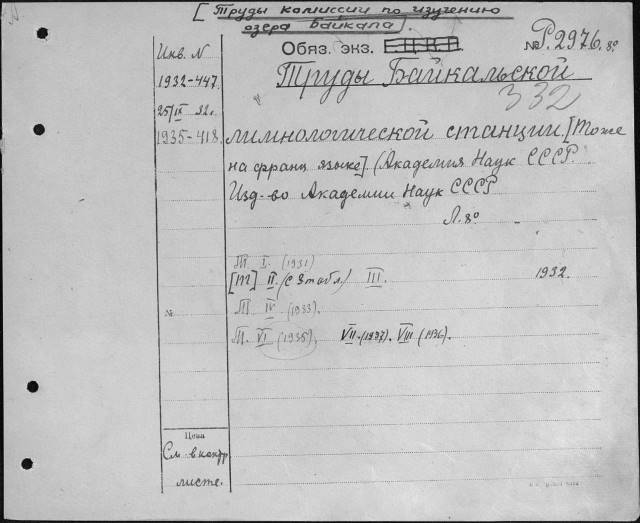 [Труды комиссии по изучению
озера Байкала]
Обяз. экз. Е.Ц.К.П. № Р.2976.8º
Инв. N
Труды Байкальской
1932-447.
332
25/IX 32.
1935-418.
лимнологической станции. [Тоже
на франц языке]. (Академия Наук СССР.
Изд-во Академии Наук СССР
Л. 8º
Т. I. (1931)
[Т] II. (с 3 табл.) III. 1932.
№ Т IV (1933).
Т. VI (1935), VII. (1937). VIII (1936).
Цена
См. в контр
листе.